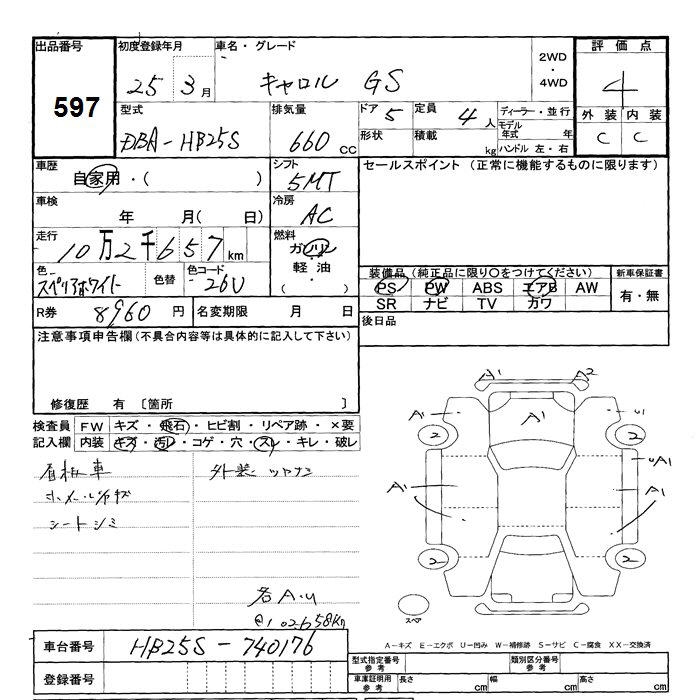 出品番号 初度登録年月 車名・グレード 2WD・4WD 評価点
597
25 3月 キャロル GS 4
外装 内装
C C
型式 排気量 ドア 定員 ディーラー・並行
DBA-HB25S 660cc 5 4人 モデル年式 年
形状 積載 kg ハンドル 左・右
車歴 シフト セールスポイント (正常に機能するものに限ります)
自家用・( ) 5MT
車検 冷房
年 月( 日) AC
走行 燃料
10万2千657km ガソリン
軽油
( )
色 色替 色コード 装備品(純正品に限り〇をつけてください) 新車保証書
スペリアホワイト 26U PS PW ABS エアB AW 有・無
SR ナビ TV カワ
R券 8960円 名変期限 月 日 後日品
注意事項申告欄(不具合内容等は具体的に記入して下さい)
修復歴 有 〔箇所 〕
検査員 FW キズ・飛石・ヒビ割・リペア跡・×要
記入欄 内装 キズ・汚レ・コゲ・穴・スレ・キレ・破レ
外装 ツヤナシ
ホイールキズ
シートシミ
各A.U
@102658Kn
A1 A2
A1 A1 U1
2 2
A1 A1 UA1
2 2
スペア
車台番号 HB25S-740176
登録番号
A-キズ E-エクボ U-凹み W-補修跡 S-サビ C-腐食 XX-交換済
型式指定番号 参考 類別区分番号 参考
車庫証明用 参考 長さ cm 幅 cm 高さ cm